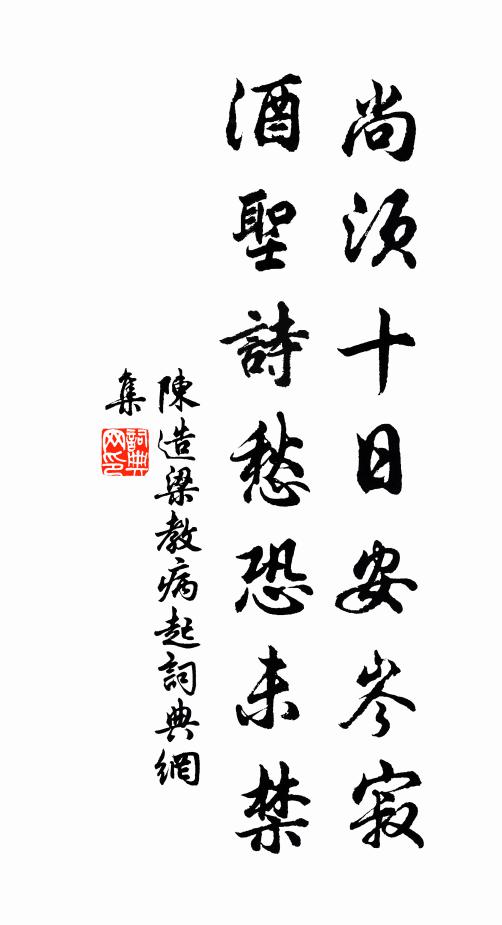 尚須十日安岑寂
酒聖詩愁恐未禁
陳造梁教病起詞典網
集
詞典网印